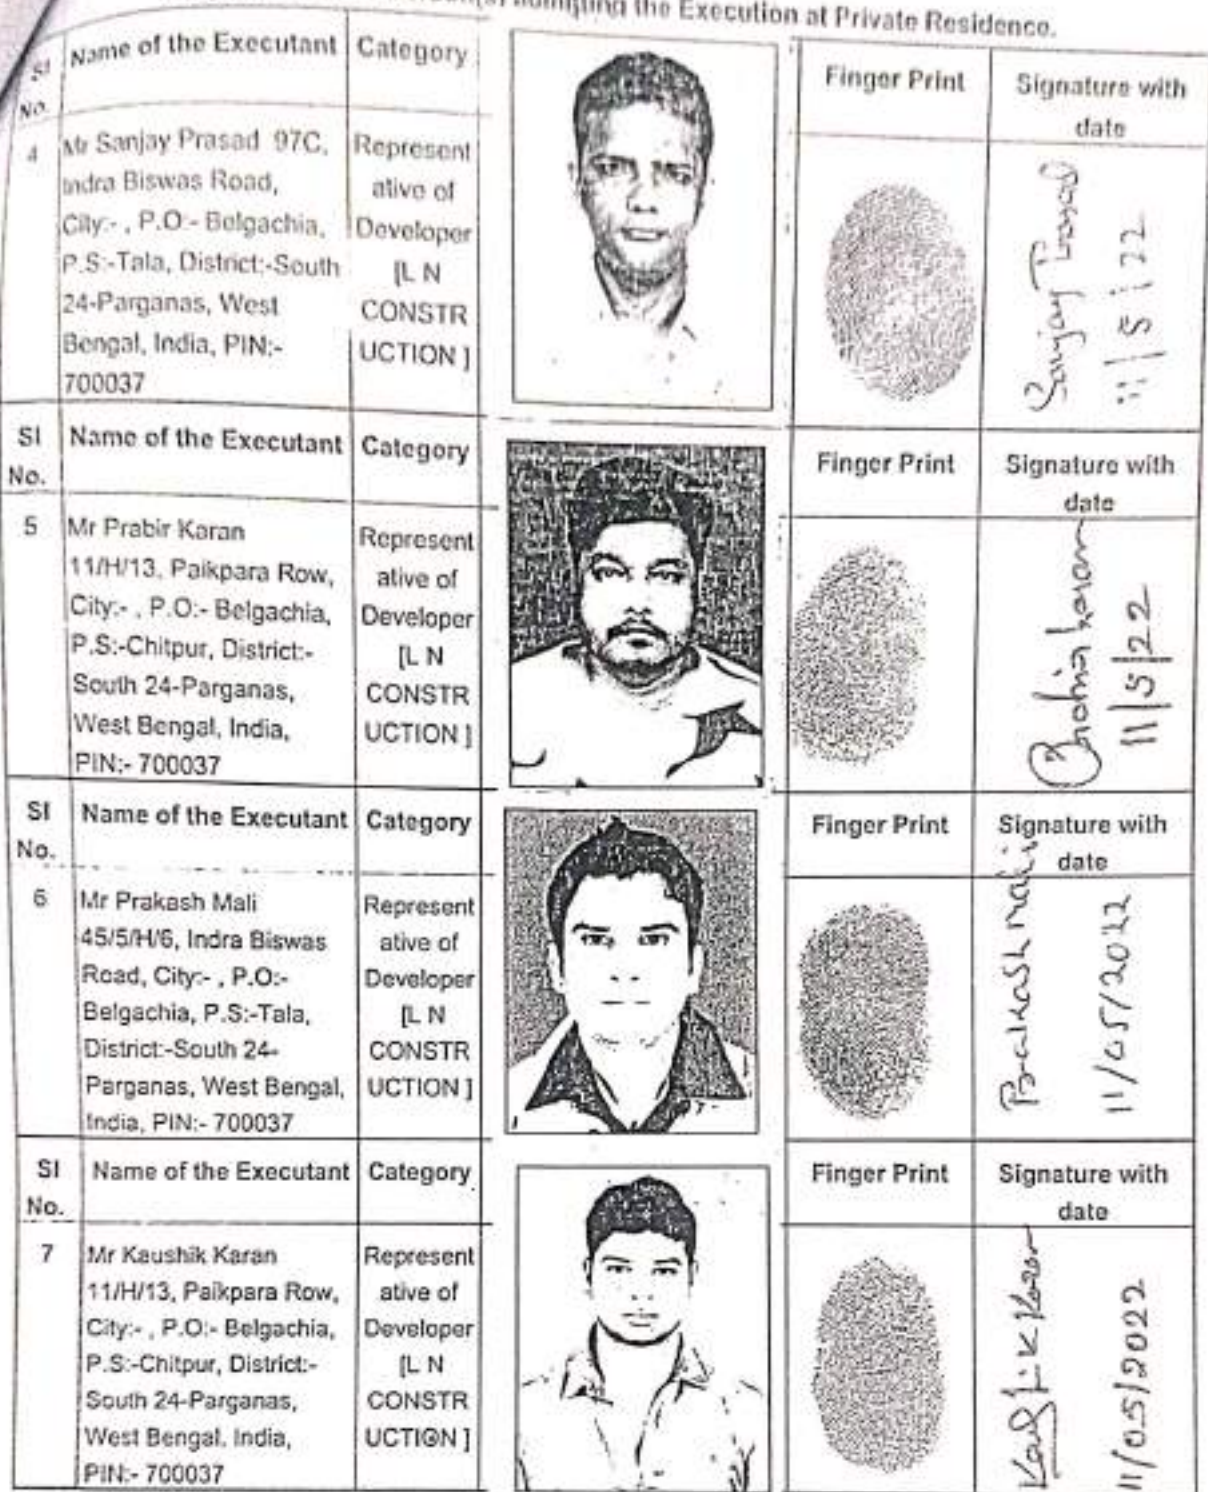 the Execution at Private Residence.
Sl No.
Name of the Executant
Category
Finger Print
Signature with date
4
Mr Sanjay Prasad 97C,
Indra Biswas Road,
City:- , P.O:- Belgachia,
P.S:-Tala, District:-South
24-Parganas, West
Bengal, India, PIN:-
700037
Represent
ative of
Developer
[L N
CONSTR
UCTION ]
Sanjay Prasad
11/5/22
Sl No.
Name of the Executant
Category
Finger Print
Signature with date
5
Mr Prabir Karan
11/H/13, Paikpara Row,
City:- , P.O:- Belgachia,
P.S:-Chitpur, District:-
South 24-Parganas,
West Bengal, India,
PIN:- 700037
Represent
ative of
Developer
[L N
CONSTR
UCTION ]
Prabir karan
11/5/22
Sl No.
Name of the Executant
Category
Finger Print
Signature with date
6
Mr Prakash Mali
45/5/H/6, Indra Biswas
Road, City:- , P.O:-
Belgachia, P.S:-Tala,
District:-South 24-
Parganas, West Bengal,
India, PIN:- 700037
Represent
ative of
Developer
[L N
CONSTR
UCTION ]
Prakash mali
11/05/2022
Sl No.
Name of the Executant
Category
Finger Print
Signature with date
7
Mr Kaushik Karan
11/H/13, Paikpara Row,
City:- , P.O:- Belgachia,
P.S:-Chitpur, District:-
South 24-Parganas,
West Bengal, India,
PIN:- 700037
Represent
ative of
Developer
[L N
CONSTR
UCTION ]
Kaushik Karan
11/05/2022